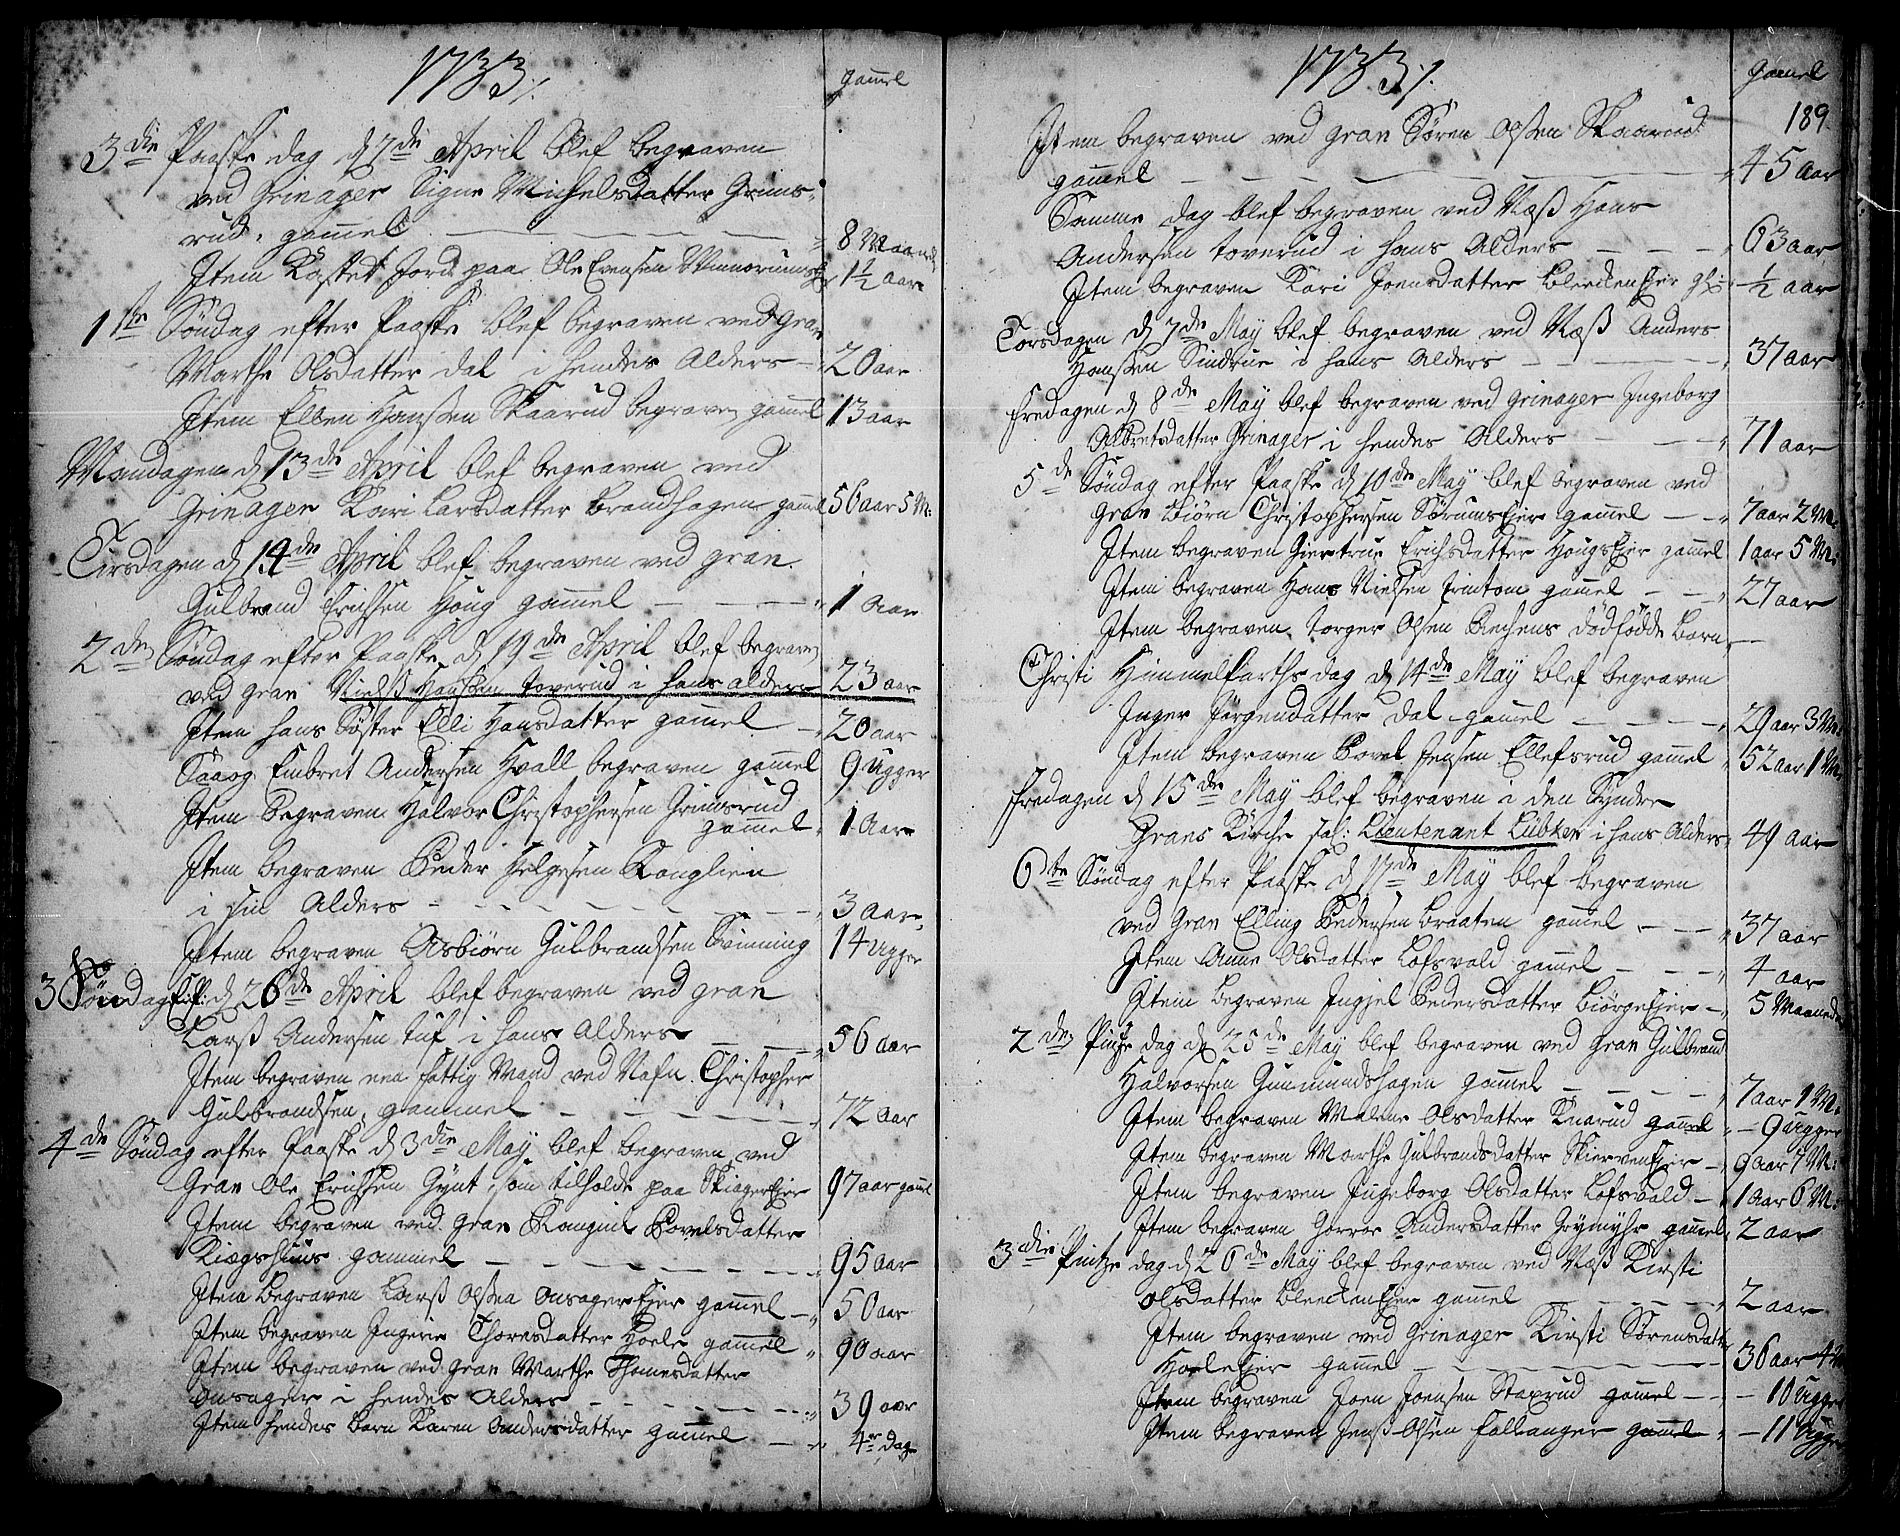 1733.
gamel
3die Paaske dag d 7de April blef begraven
ved Grinager Signe Michelsdatter Grims-
rud, gamel — 8 Maaneder
Item Kastet Jord paa Ole Evensen 1½ aar
1ste Søndag efter Paaske blef begraven ved Gran
Marthe Olsdatter Dal i hendes Alders — 20 aar
Item Ellen Hansen Skaarud begraven gamel 13 aar
Mandagen d 13de April blef begraven ved
Grinager Kari Larsdatter Brandhagen gamel 56 aar 5 M:
Tirsdagen d 14de April blef begraven ved Gran
Gulbrand Erichsen Houg gamel — 1 Aar
2den Søndag efter Paaske d 19de April blef begraven
ved Gran Nielß Hanßen Toverud i hans alders 23 aar
Item hans Søster Elli Hansdatter gamel — 20 aar
Saaog Embret Andersen Hvall begraven gamel 9 Ugger
Item Begraven Halvor Christophersen Grimsrud
gamel 1 Aar
Item begraven Peder Helgesen Ranglien
i sin Alders — 3 Aar
Item begraven Asbiørn Gulbrandsen Svinning 14 Ugger
3 Søndag d 26de April blef begraven ved Gran
Larß Andersen Tuf i hans Alders — 56 aar
Item begraven een fattig Mand ved Nafn Christopher
Gulbrandsen, gammel — 72 aar
4de Søndag efter Paaske d 3die May blef begraven ved
Gran Ole Erichsen Gynt, som tilholdt paa Skiager Eier 97 aar gamel
Item begraven ved Gran Rangnil Povelsdatter
Kiøgshuus gammel — 95 aar
Item Begraven Larß Olßen Onsager Eier gamel — 50 aar
Item begraven Ingerie Thoresdatter Hoele gamel 90 aar
Item begraven ved Gran Marthe Thomesdatter
Onsager i hendes Alders — 39 aar
Item hendes Barn Karen Andersdatter gamel — 4re dage
1733.
gamel
189
Item begraven ved Gran Søren Olßen Skaarud
gamel — 45 aar
Samme dag blef begraven ved Næß Hans
Andersen Toverud i hans Alders — 63 aar
Item begraven Kari Joensdatter Bleeken Eier gl: ½ aar
Torsdagen d 7de May blef begraven ved Næß Anders
Hanßen Sindrue i hans Alders — 37 aar
Fredagen d 8de May blef begraven ved Grinager Ingeborg
Albretsdatter Grinager i hendes Alders — 71 aar
5de Søndag efter Paaske d 10de May blef begraven ved
Gran Biørn Christophersen Sørums Eier gamel — 7 aar 2 M:
Item begraven Giertrue Erichsdatter Hougs Eier gamel 1 aar 5 M:
Item begraven Hans Nielsen Framtom gamel — 27 aar
Item begraven Torger Olsen Bechens dødfødde barn —
Christi Himmelfarths dag d 14de May blef begraven
Inger Jørgendatter Dal gamel — 29 aar 3 M:
Item begraven Povel Jensen Ellefsrud gamel 52 aar 1 M:
Fredagen d 15de May blef begraven i den Syndre
Grans Kirche sal: Lieutenant Lübker i hans Alders 49 aar
6te Søndag efter Paaske d 17de May blef begraven
ved Gran Elling Pedersen Braaten gamel — 37 aar
Item Anne Olsdatter Lofsvald gamel — 4 aar
Item begraven Ingjel Pedersdatter Biørge Eier — 5 Maaneder
2den Pintze dag d 25de May blef begraven ved Gran Gulbrand
Halvorsen Gunmundshagen gamel — 7 aar 1 M:
Item begraven Malene Olsdatter Knarud gamel — 9 Ugger
Item begraven Marthe Gulbrandsdatter Skierven Eier — 9 aar 7 M:
Item begraven Ingeborg Olsdatter Lofsvald — 1 aar 6 M:
Item begraven Gorroe Andersdatter Grymyhr gamel 2 aar
3die Pintze dag d 26de May blef begraven ved Næß Kirsti
Olsdatter Bleecken Eier gamel — 2 aar
Item begraven ved Grinager Kirsti Sørensdatter
Hoele Eier gamel — 36 aar 4 M
Item begraven Joen Joensen Staxrud gamel — 10 Ugger
Item begraven Jenß Olsen Fallanger gamel — 11 Ugger